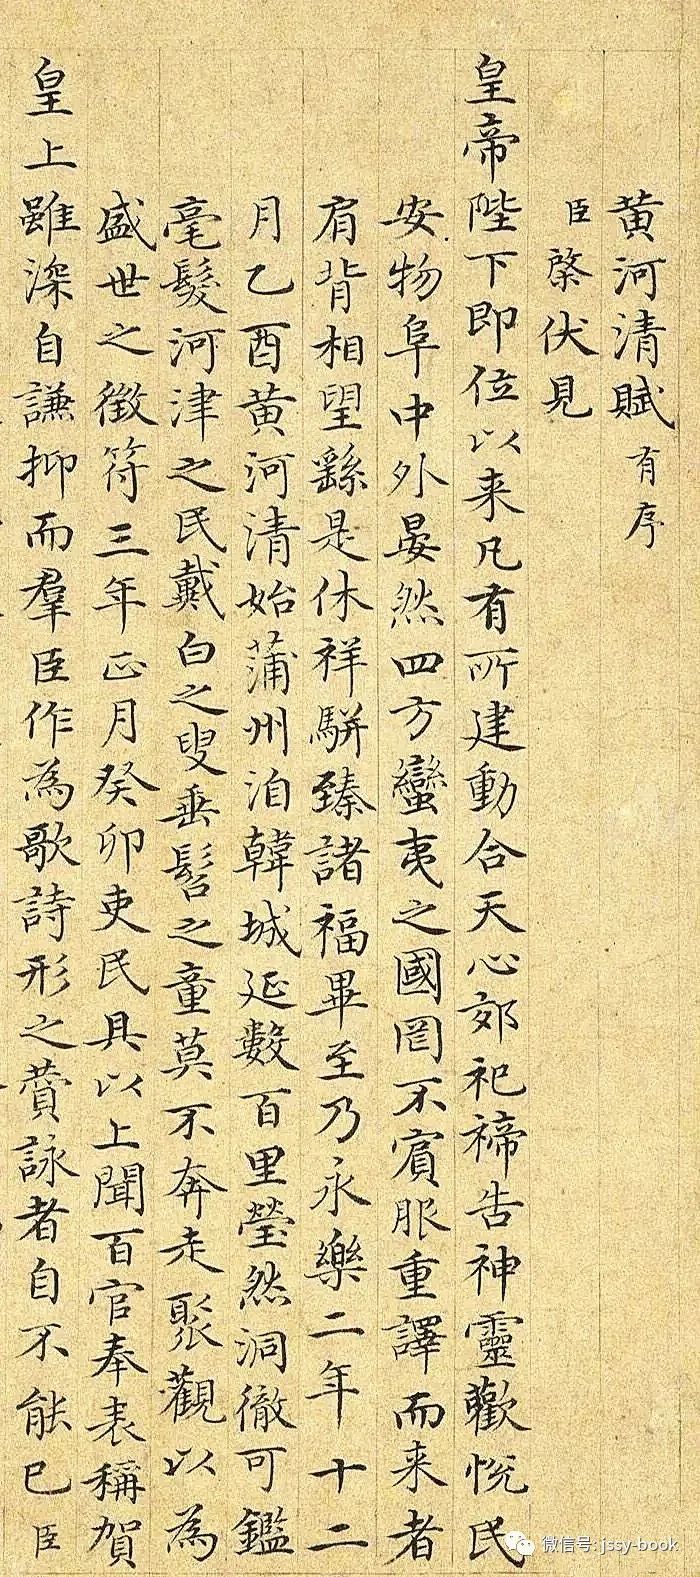 黄河清賦有序
臣棨伏見
皇帝陛下即位以来凡有所建動合天心郊祀禘告神靈歡悦民
安物阜中外晏然四方蠻夷之國罔不賓服重譯而来者
肩背相望繇是休祥駢臻諸福畢至乃永樂二年十二
月乙酉黄河清始蒲州洎韓城延數百里瑩然洞徹可鑑
毫髮河津之民戴白之叟垂髫之童莫不奔走聚觀以為
盛世之徵符三年正月癸卯吏民具以上聞百官奉表稱賀
皇上雖深自謙抑而羣臣作為歌詩形之賛詠者自不能已臣
微信号: jssy-book